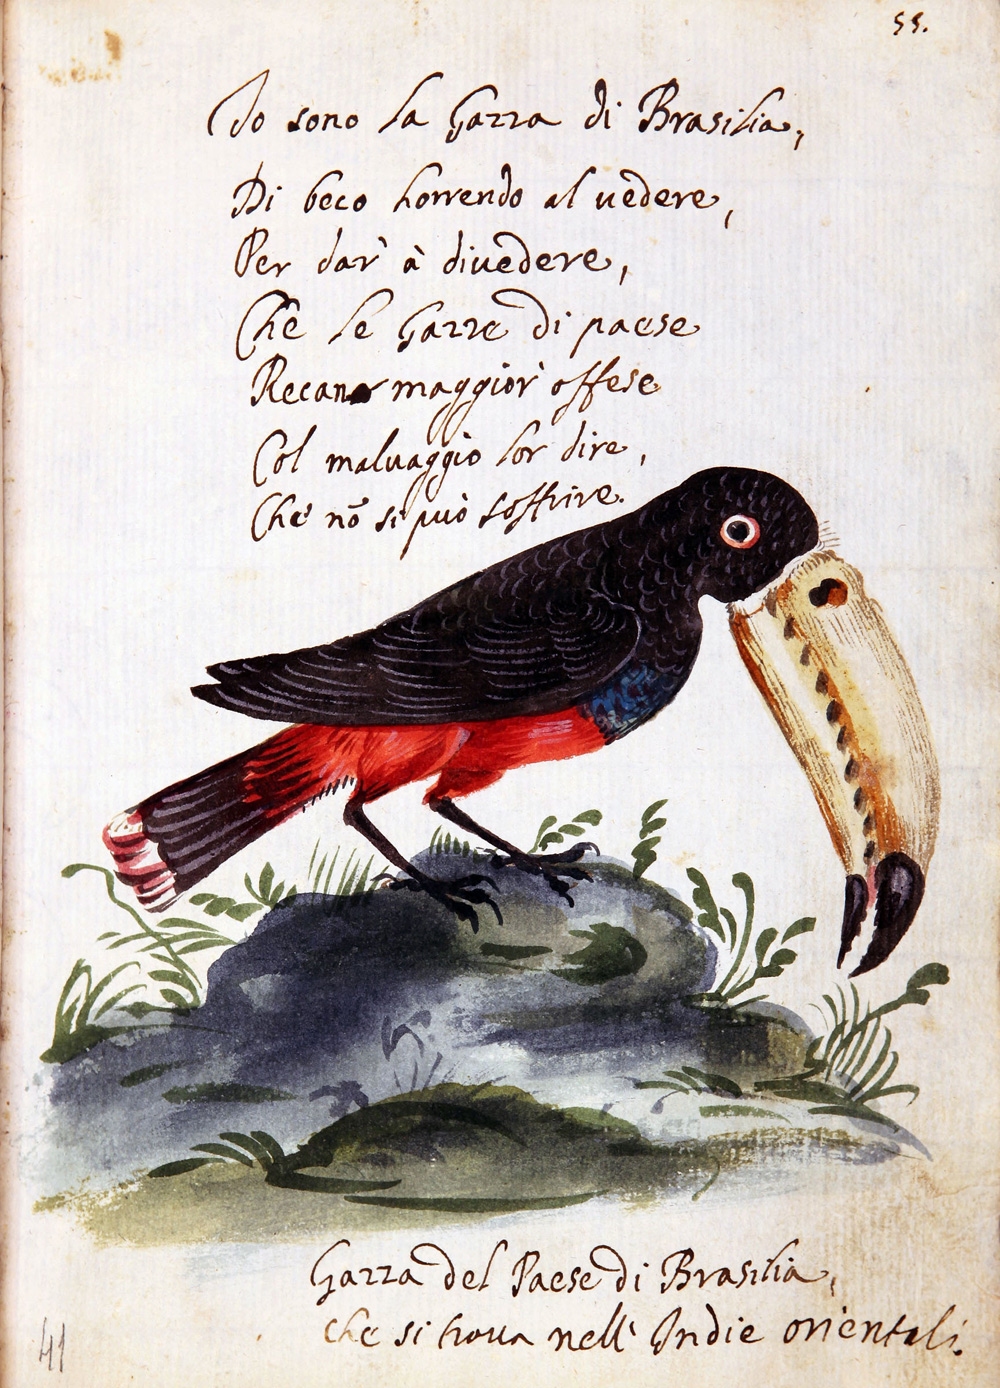 55.
Io sono la Gazza di Brasilia,
Di beco horrendo al uedere,
Per dar' à diuedere,
Che le Gazze di paese
Recano maggior' offese
Col maluaggio lor dire,
Che nõ si può soffrire.
Gazza del Paese di Brasilia,
che si troua nell' Indie orientali.
41